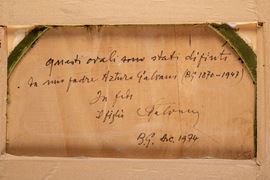 Questi ovali sono stati dipinti
da mio padre Arturo Galvani (BG 1870-1941)
In fede
Il figlio Galvani
BG. Dic. 1974